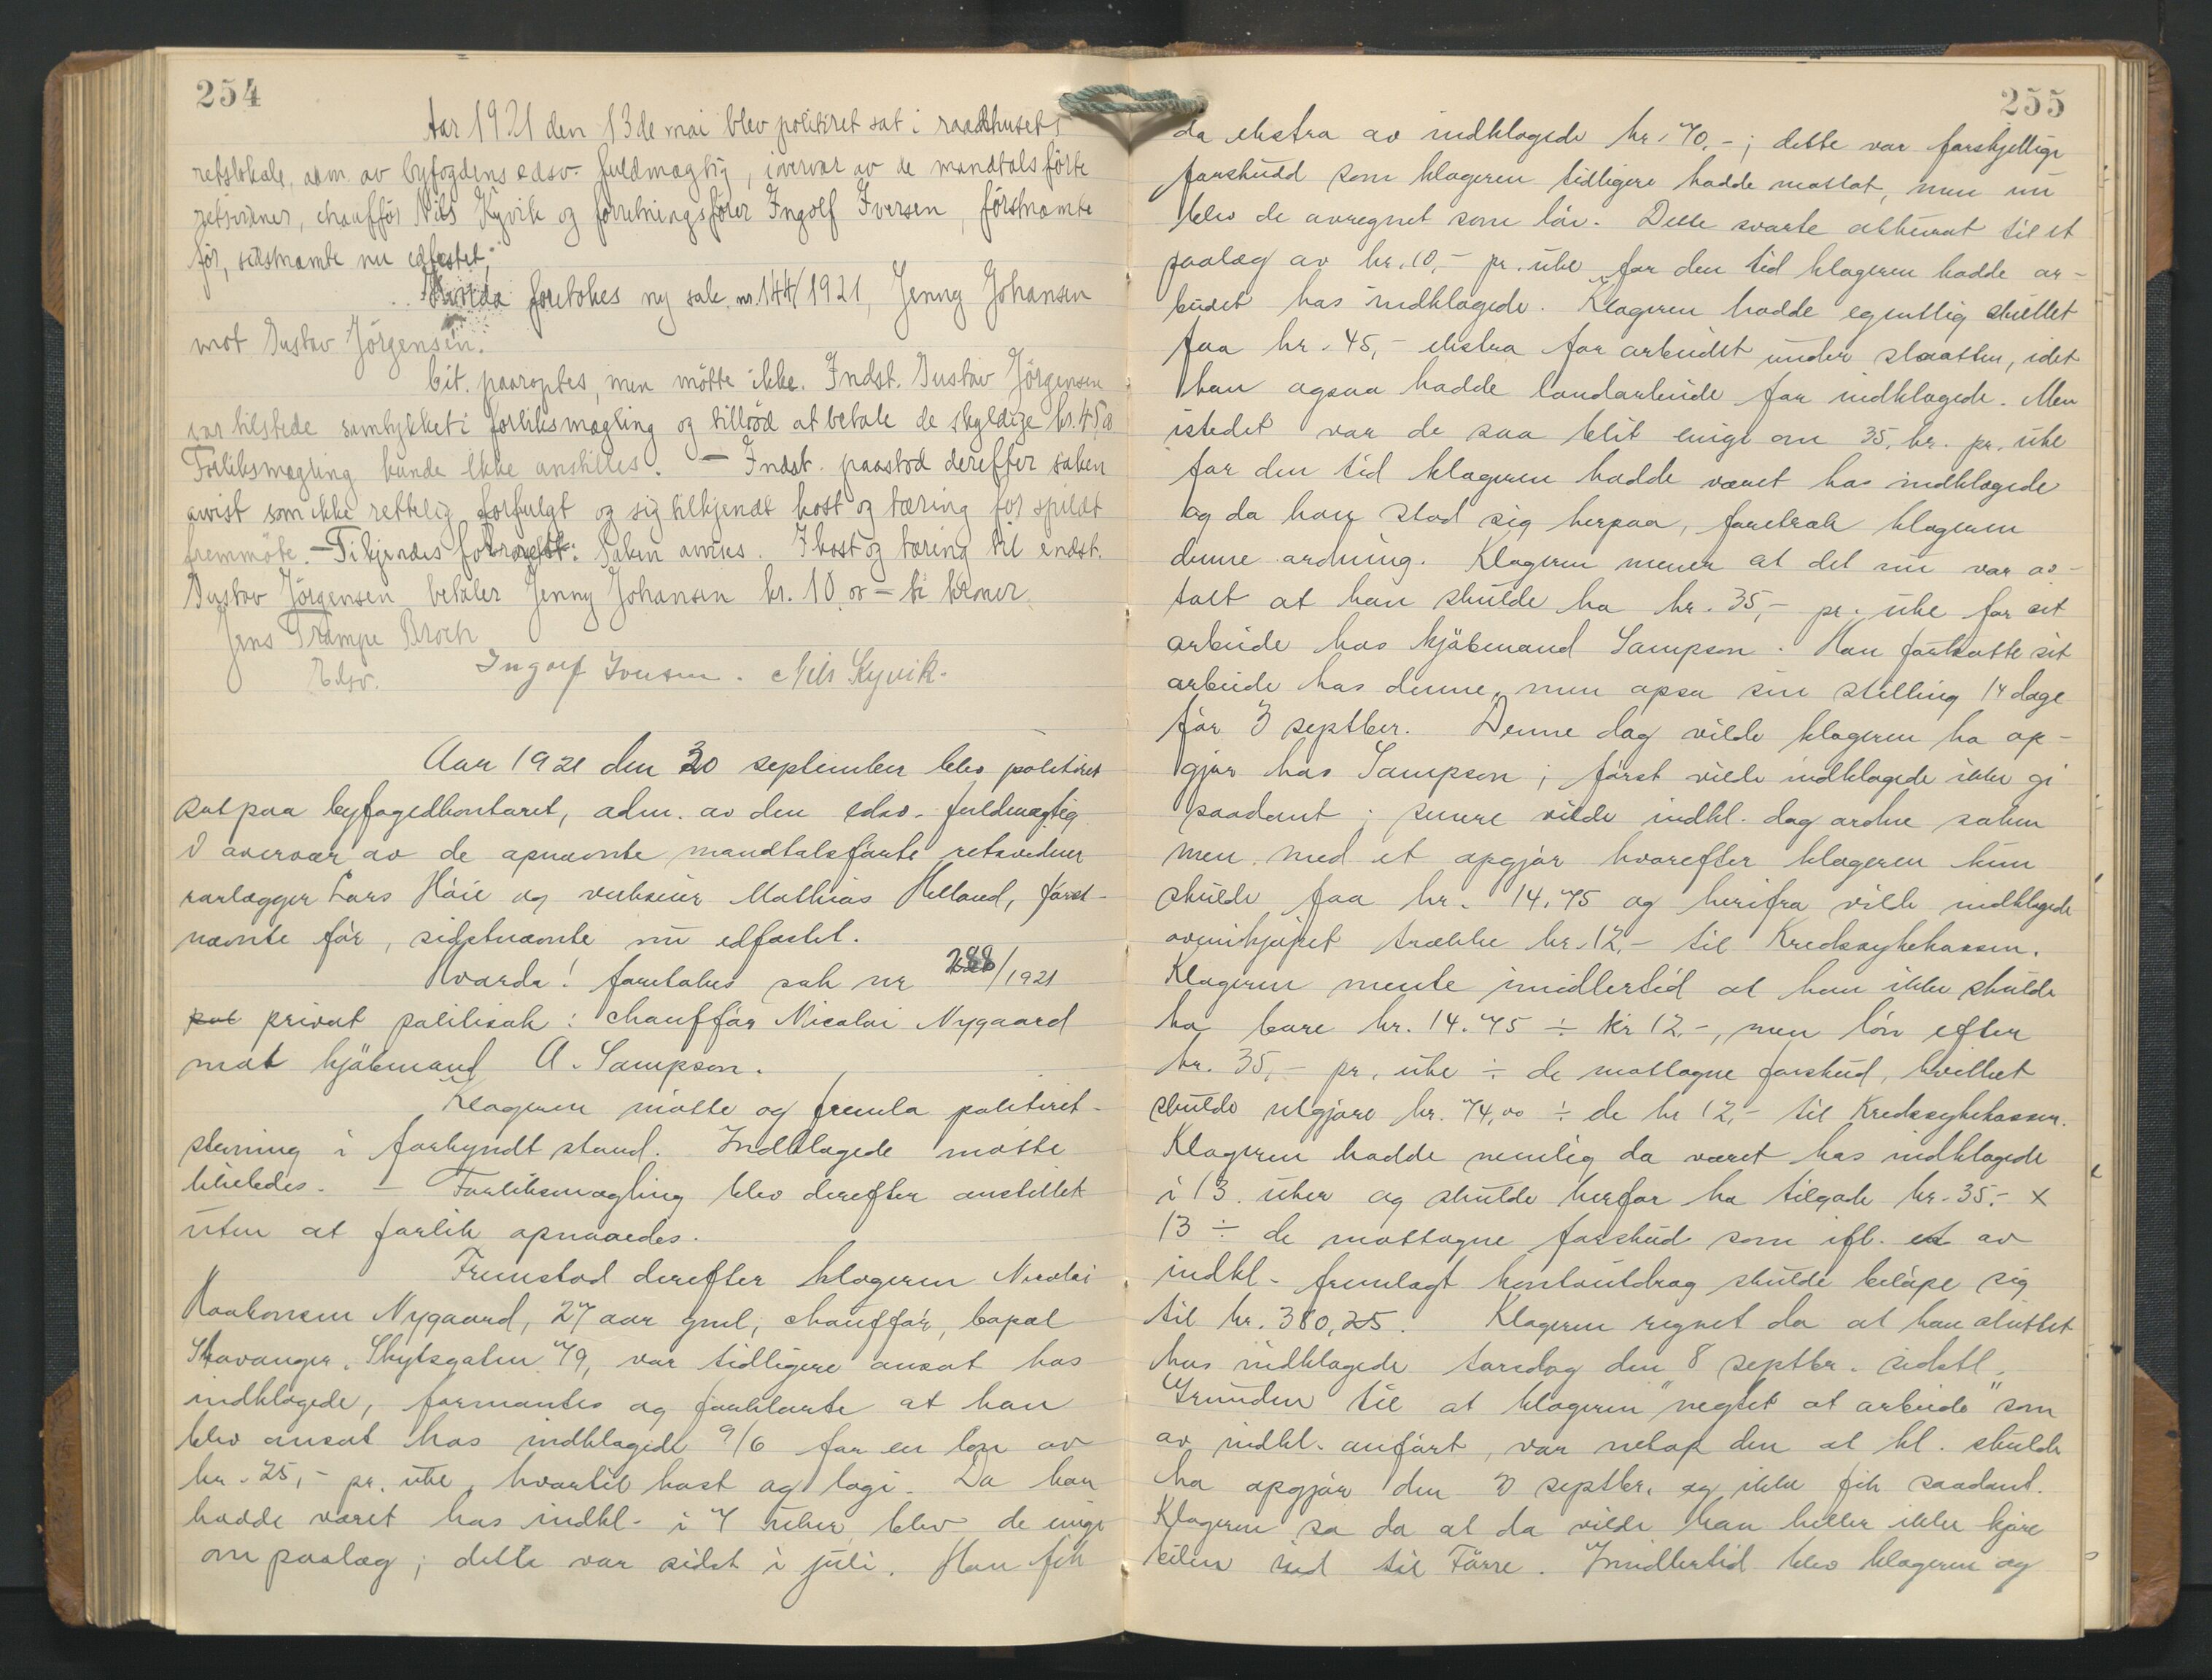 254
Aar 1921 den 13de mai blev politiret sat i raadhusets
retslokale, adm. av byfogdens edsv. fuldmægtig, i overvær av de mandtalsførte
retsvidner, chauffør Nils Kyvik og forretningsfører Ingolf Iversen, førstnævnte
før, sidstnævnte nu edfæstet,
Hvorda foretokes ny sak nr. 144/1921, Jenny Johansen
mot Gustav Jørgensen.
Cit. paaroptes, men møtte ikke. Indst. Gustav Jørgensen
var tilstede samtykket i forliksmægling og tilbød at betale de skyldige kr. 45,00
Forliksmægling kunde ikke anstilles. — Indst. paastod derefter saken
avvist som ikke rettelig forfulgt og sig tilkjendt kost og tæring for spildt
fremmøte. — Ti kjendes for ret: Saken avvises. I kost og tæring til indst.
Gustav Jørgensen betaler Jenny Johansen kr. 10,00 — ti kroner
Jens Trampe Broch
Edsv. Ingolf Iversen. Nils Kyvik.
Aar 1921 den 30 september blev politiret
sat paa byfogedkontoret, adm. av den edsv. fuldmægtig
i overvær av de opnævnte mandtalsførte retsvidner
rørlægger Lars Høie og Mathias Helland, først-
nævnte før, sidstnævnte nu edfæstet.
Hvorda! foretokes sak nr 288/1921
privat politisak: chauffør Nicolai Nygaard
mot kjøbmand A. Sampson.
Klageren møtte og fremla politiret-
stevning i forkyndt stand. Indklagede møtte
tilstedes. — Forliksmægling blev derefter anstillet
uten at forlik opnaaedes.
Fremstod derefter klageren Nicolai
Haakonsen Nygaard, 27 aar gml, chauffør, bopæl
Stavanger, Skytsgaten 79, var tidligere ansat hos
indklagede, formantes og forklarte at han
blev ansat hos indklagede 9/6 for en løn av
kr. 25,- pr. uke, hvortil kost og logi. Da han
hadde været hos indkl. i 7 uker blev de enige
om paalæg; dette var sidst i juli. Han fik
255
da ekstra av indklagede kr. 70,-; dette var forskjellige
forskudd som klageren tidligere hadde mottat, men nu
blev de avregnet som løn. Dette svarte akkurat til et
paalæg av kr. 10,- pr. uke for den tid klageren hadde ar-
beidet hos indklagede. Klageren hadde egentlig skullet
faa kr. 45,- ekstra for arbeidet under slaatten, idet
han ogsaa hadde landarbeide for indklagede. Men
istedet var de saa blit enige om 35, kr. pr. uke
for den tid klageren hadde været hos indklagede
og da han stod sig herpaa, foretrak klageren
denne ordning. Klageren mener at det nu var av-
talt at han skulde ha kr. 35,- pr. uke for sit
arbeide hos kjøbmand Sampson. Han fortsatte sit
arbeide hos denne, men opsa sin stilling 14 dage
før 3 septber. Denne dag vilde klageren ha op-
gjør hos Sampson; først vilde indklagede ikke gi
saadant; senere vilde indkl. dog ordne saken
men med et opgjør hvorefter klageren kun
skulde faa kr. 14,75 og herifra vilde indklagede
ovenikjøpet trække kr. 12,- til Kredssykekassen.
Klageren mente imidlertid at han ikke skulde
ha bare kr. 14.75 ÷ kr 12.-, men løn efter
kr. 35,- pr. uke ÷ de mottagne forskud, hvilket
skulde utgjøre kr. 74,00 ÷ de kr 12,- til Kredssykekassen.
Klageren hadde nemlig da været hos indklagede
i 13. uker og skulde herfor ha tilgode kr. 35.- x
13 ÷ de mottagne forskud som ifl. av
indkl. fremlagt kontoutdrag skulde beløpe sig
til kr. 380,25. Klageren regnet da at han sluttet
hos indklagede torsdag den 8 septbr. sidstl.
Grunden til at klageren "negtet at arbeide" som
av indkl. anført, var netop den at kl. skulde
ha opgjør den 3 septbr. og ikke fik saadant.
Klageren sa da at da vilde han heller ikke kjøre
bilen ind til Førre. Imidlertid blev klageren og